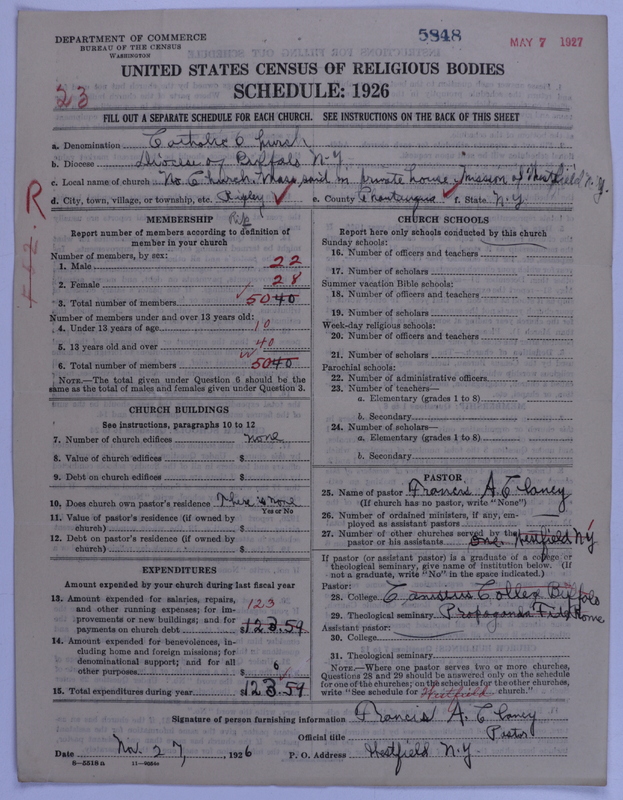 DEPARTMENT OF COMMERCE
BUREAU OF THE CENSUS
WASHINGTON
5848
MAY 7 1927
UNITED STATES CENSUS OF RELIGIOUS BODIES
SCHEDULE: 1926
23
FILL OUT A SEPARATE SCHEDULE FOR EACH CHURCH. SEE INSTRUCTIONS ON THE BACK OF THIS SHEET
a. Denomination Catholic Church
b. Diocese Diocese of Buffalo N-Y
c. Local name of church No Church. Mass said in private house. Mission of Westfield N.Y.
d. City, town, village, or township, etc. Ripley e. County Chautauqua f. State N.Y.
Rip
MEMBERSHIP
Report number of members according to definition of
member in your church
Number of members, by sex:
1. Male 22
2. Female 28
3. Total number of members 50 40
Number of members under and over 13 years old:
4. Under 13 years of age 10
5. 13 years old and over 40
6. Total number of members 50 40
NOTE.—The total given under Question 6 should be the
same as the total of males and females given under Question 3.
CHURCH BUILDINGS
See instructions, paragraphs 10 to 12
7. Number of church edifices none
8. Value of church edifices $
9. Debt on church edifices $
10. Does church own pastor's residence There is none
Yes or No
11. Value of pastor's residence (if owned by
church) $
12. Debt on pastor's residence (if owned by
church) $
EXPENDITURES
Amount expended by your church during last fiscal year
13. Amount expended for salaries, repairs,
and other running expenses; for im-
provements or new buildings; and for
payments on church debt 123
$123.59
14. Amount expended for benevolences, in-
cluding home and foreign missions; for
denominational support; and for all
other purposes $ 6
15. Total expenditures during year $123.59
CHURCH SCHOOLS
Report here only schools conducted by this church
Sunday schools:
16. Number of officers and teachers
17. Number of scholars
Summer vacation Bible schools:
18. Number of officers and teachers
19. Number of scholars
Week-day religious schools:
20. Number of officers and teachers
21. Number of scholars
Parochial schools:
22. Number of administrative officers
23. Number of teachers—
a. Elementary (grades 1 to 8)
b. Secondary
24. Number of scholars—
a. Elementary (grades 1 to 8)
b. Secondary
PASTOR
25. Name of pastor Francis A. Clancy
(If church has no pastor, write "None")
26. Number of ordained ministers, if any, em-
ployed as assistant pastors
27. Number of other churches served by the
pastor or his assistants one. Westfield N.Y.
If pastor (or assistant pastor) is a graduate of a college or
theological seminary, give name of institution below. (If
not a graduate, write "No" in the space indicated.)
Pastor:
28. College Canisius College Buffalo
29. Theological seminary Propaganda Fide Rome
Assistant pastor:
30. College
31. Theological seminary
NOTE.—Where one pastor serves two or more churches,
Questions 28 and 29 should be answered only on the schedule
for one of the churches; on the schedules for the other churches,
write "See schedule for Westfield church."
Signature of person furnishing information Francis A. Clancy
Official title Pastor
Date Nov. 27, 1926 P. O. Address Westfield N.Y.
8-5518 a